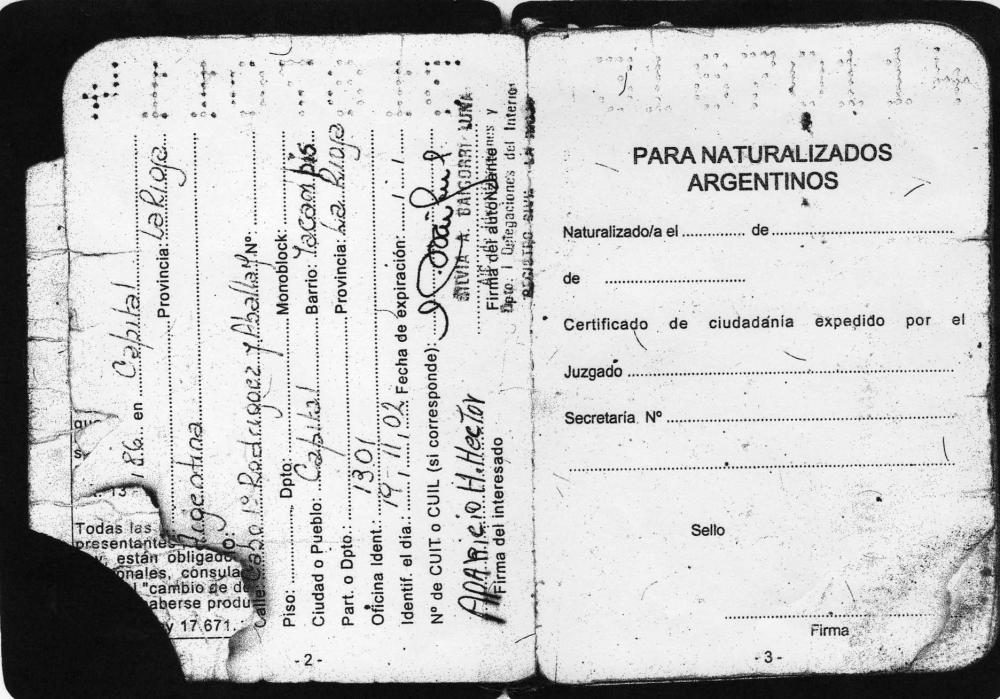 86 en Capital
Provincia: La Rioja
Argentina
Calle: Cabo 1º Rodriguez y Aballay Nº:
Piso: Dpto: Monoblock:
Ciudad o Pueblo: Capital Barrio:
Part. o Dpto.: Provincia: La Rioja
Oficina Ident.: 1301
Identif. el día: 19, 11, 02 Fecha de expiración:
Nº de CUIT o CUIL (si corresponde):
SILVIA A. BAIGORRI LUNA
Firma del autorizante
Dpto. I Delegaciones del Interior
APARICIO H. HECTOR
Firma del interesado
Todas las
presentantes
están obligado
onales, consula
"cambio de do
aberse produ
y 17.671.
- 2 -
PARA NATURALIZADOS
ARGENTINOS
Naturalizado/a el de
de
Certificado de ciudadanía expedido por el
Juzgado
Secretaría Nº
Sello
Firma
- 3 -